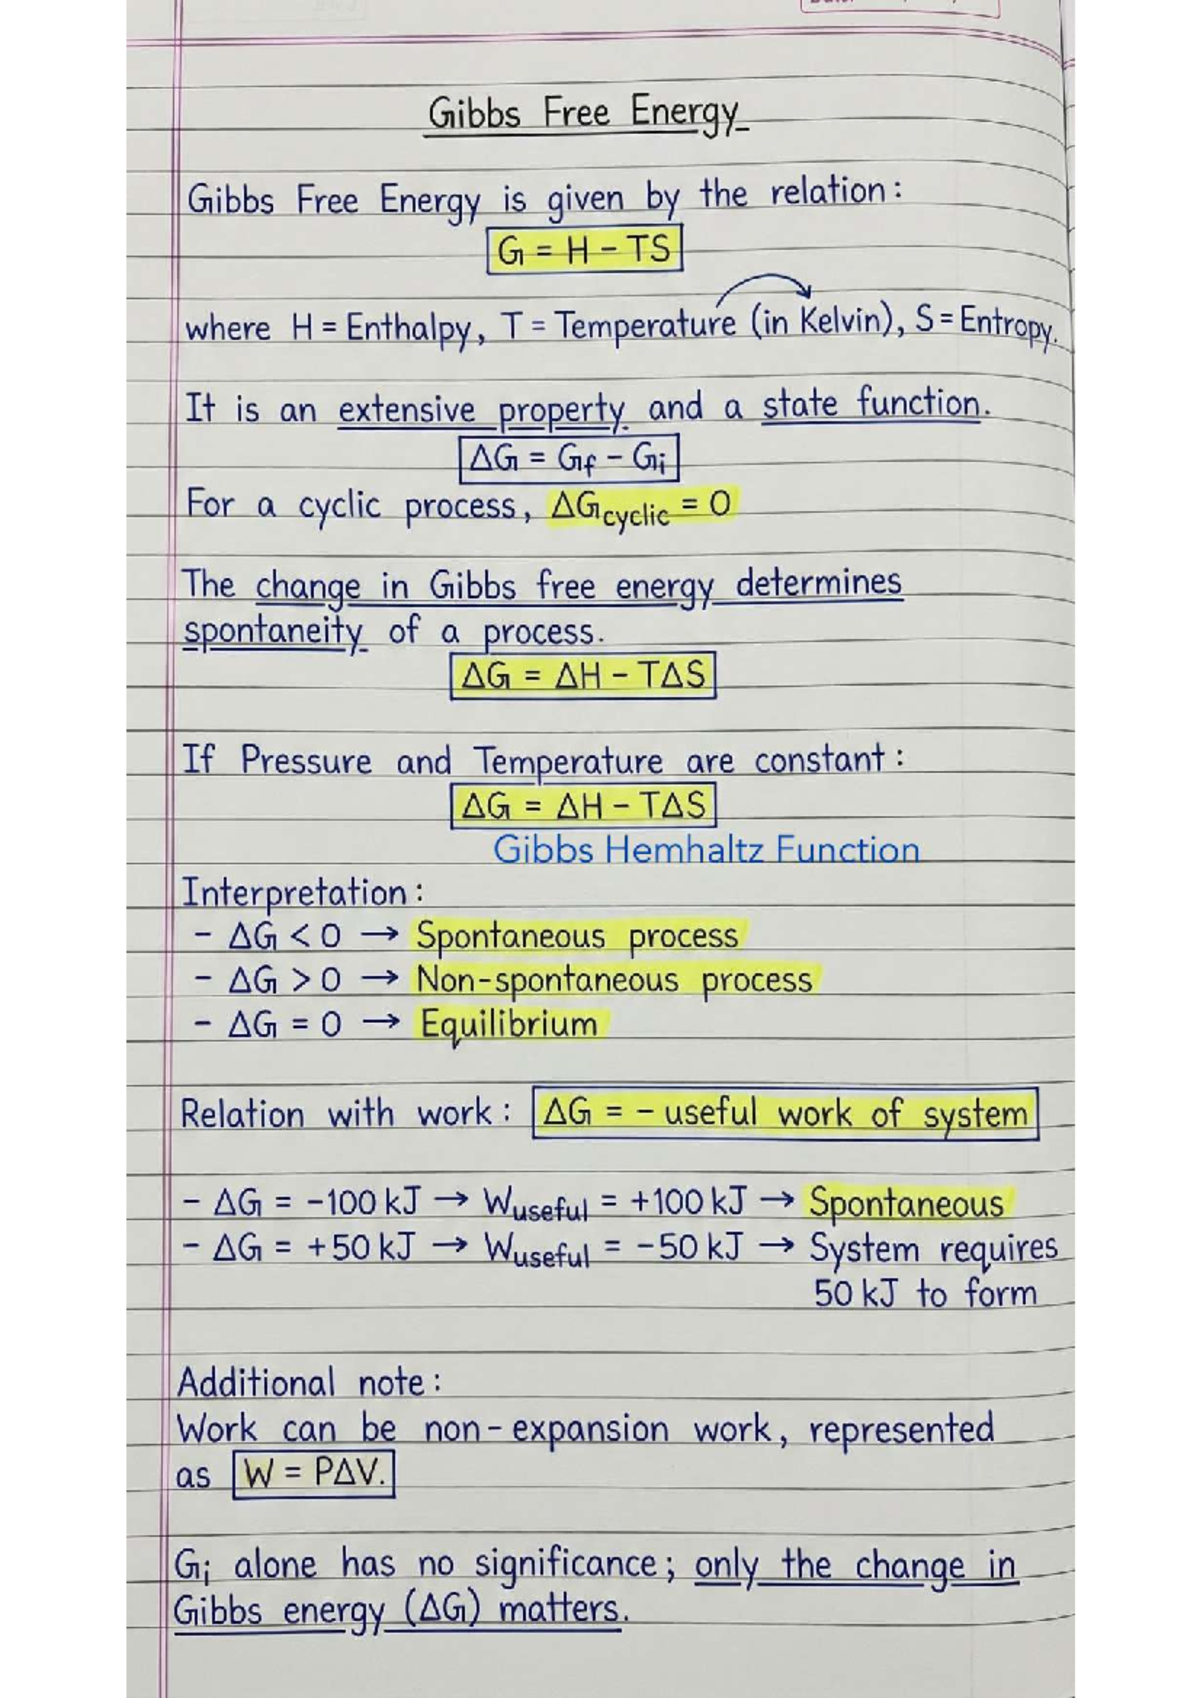 Gibbs Free Energy
Gibbs Free Energy is given by the relation:
G = H - TS
where H = Enthalpy, T = Temperature (in Kelvin), S = Entropy.
It is an extensive property and a state function.
ΔG = Gf - Gi
For a cyclic process, ΔGcyclic = 0
The change in Gibbs free energy determines
spontaneity of a process.
ΔG = ΔH - TΔS
If Pressure and Temperature are constant:
ΔG = ΔH - TΔS
Gibbs Hemhaltz Function
Interpretation:
- ΔG < 0 → Spontaneous process
- ΔG > 0 → Non-spontaneous process
- ΔG = 0 → Equilibrium
Relation with work: ΔG = - useful work of system
- ΔG = -100 kJ → Wuseful = +100 kJ → Spontaneous
- ΔG = +50 kJ → Wuseful = -50 kJ → System requires
50 kJ to form
Additional note:
Work can be non-expansion work, represented
as W = PΔV.
Gi alone has no significance; only the change in
Gibbs energy (ΔG) matters.